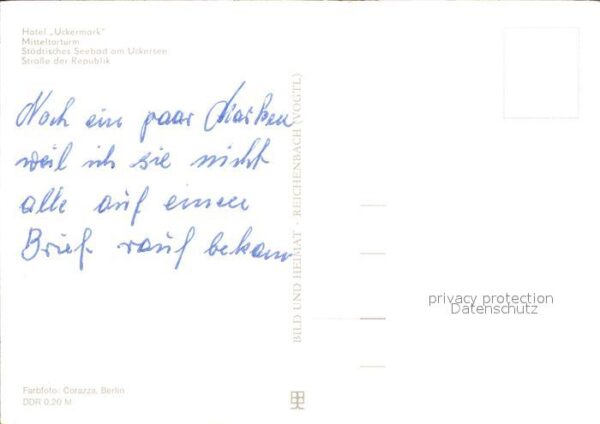 Hotel „Uckermark"
Mitteltorturm
Städtisches Seebad am Uckersee
Straße der Republik
Noch ein paar Marken
weil ich sie nicht
alle auf einen
Brief rauf bekam
BILD UND HEIMAT · REICHENBACH (VOGTL)
privacy protection
Datenschutz
Farbfoto: Corazza, Berlin
DDR 0,20 M